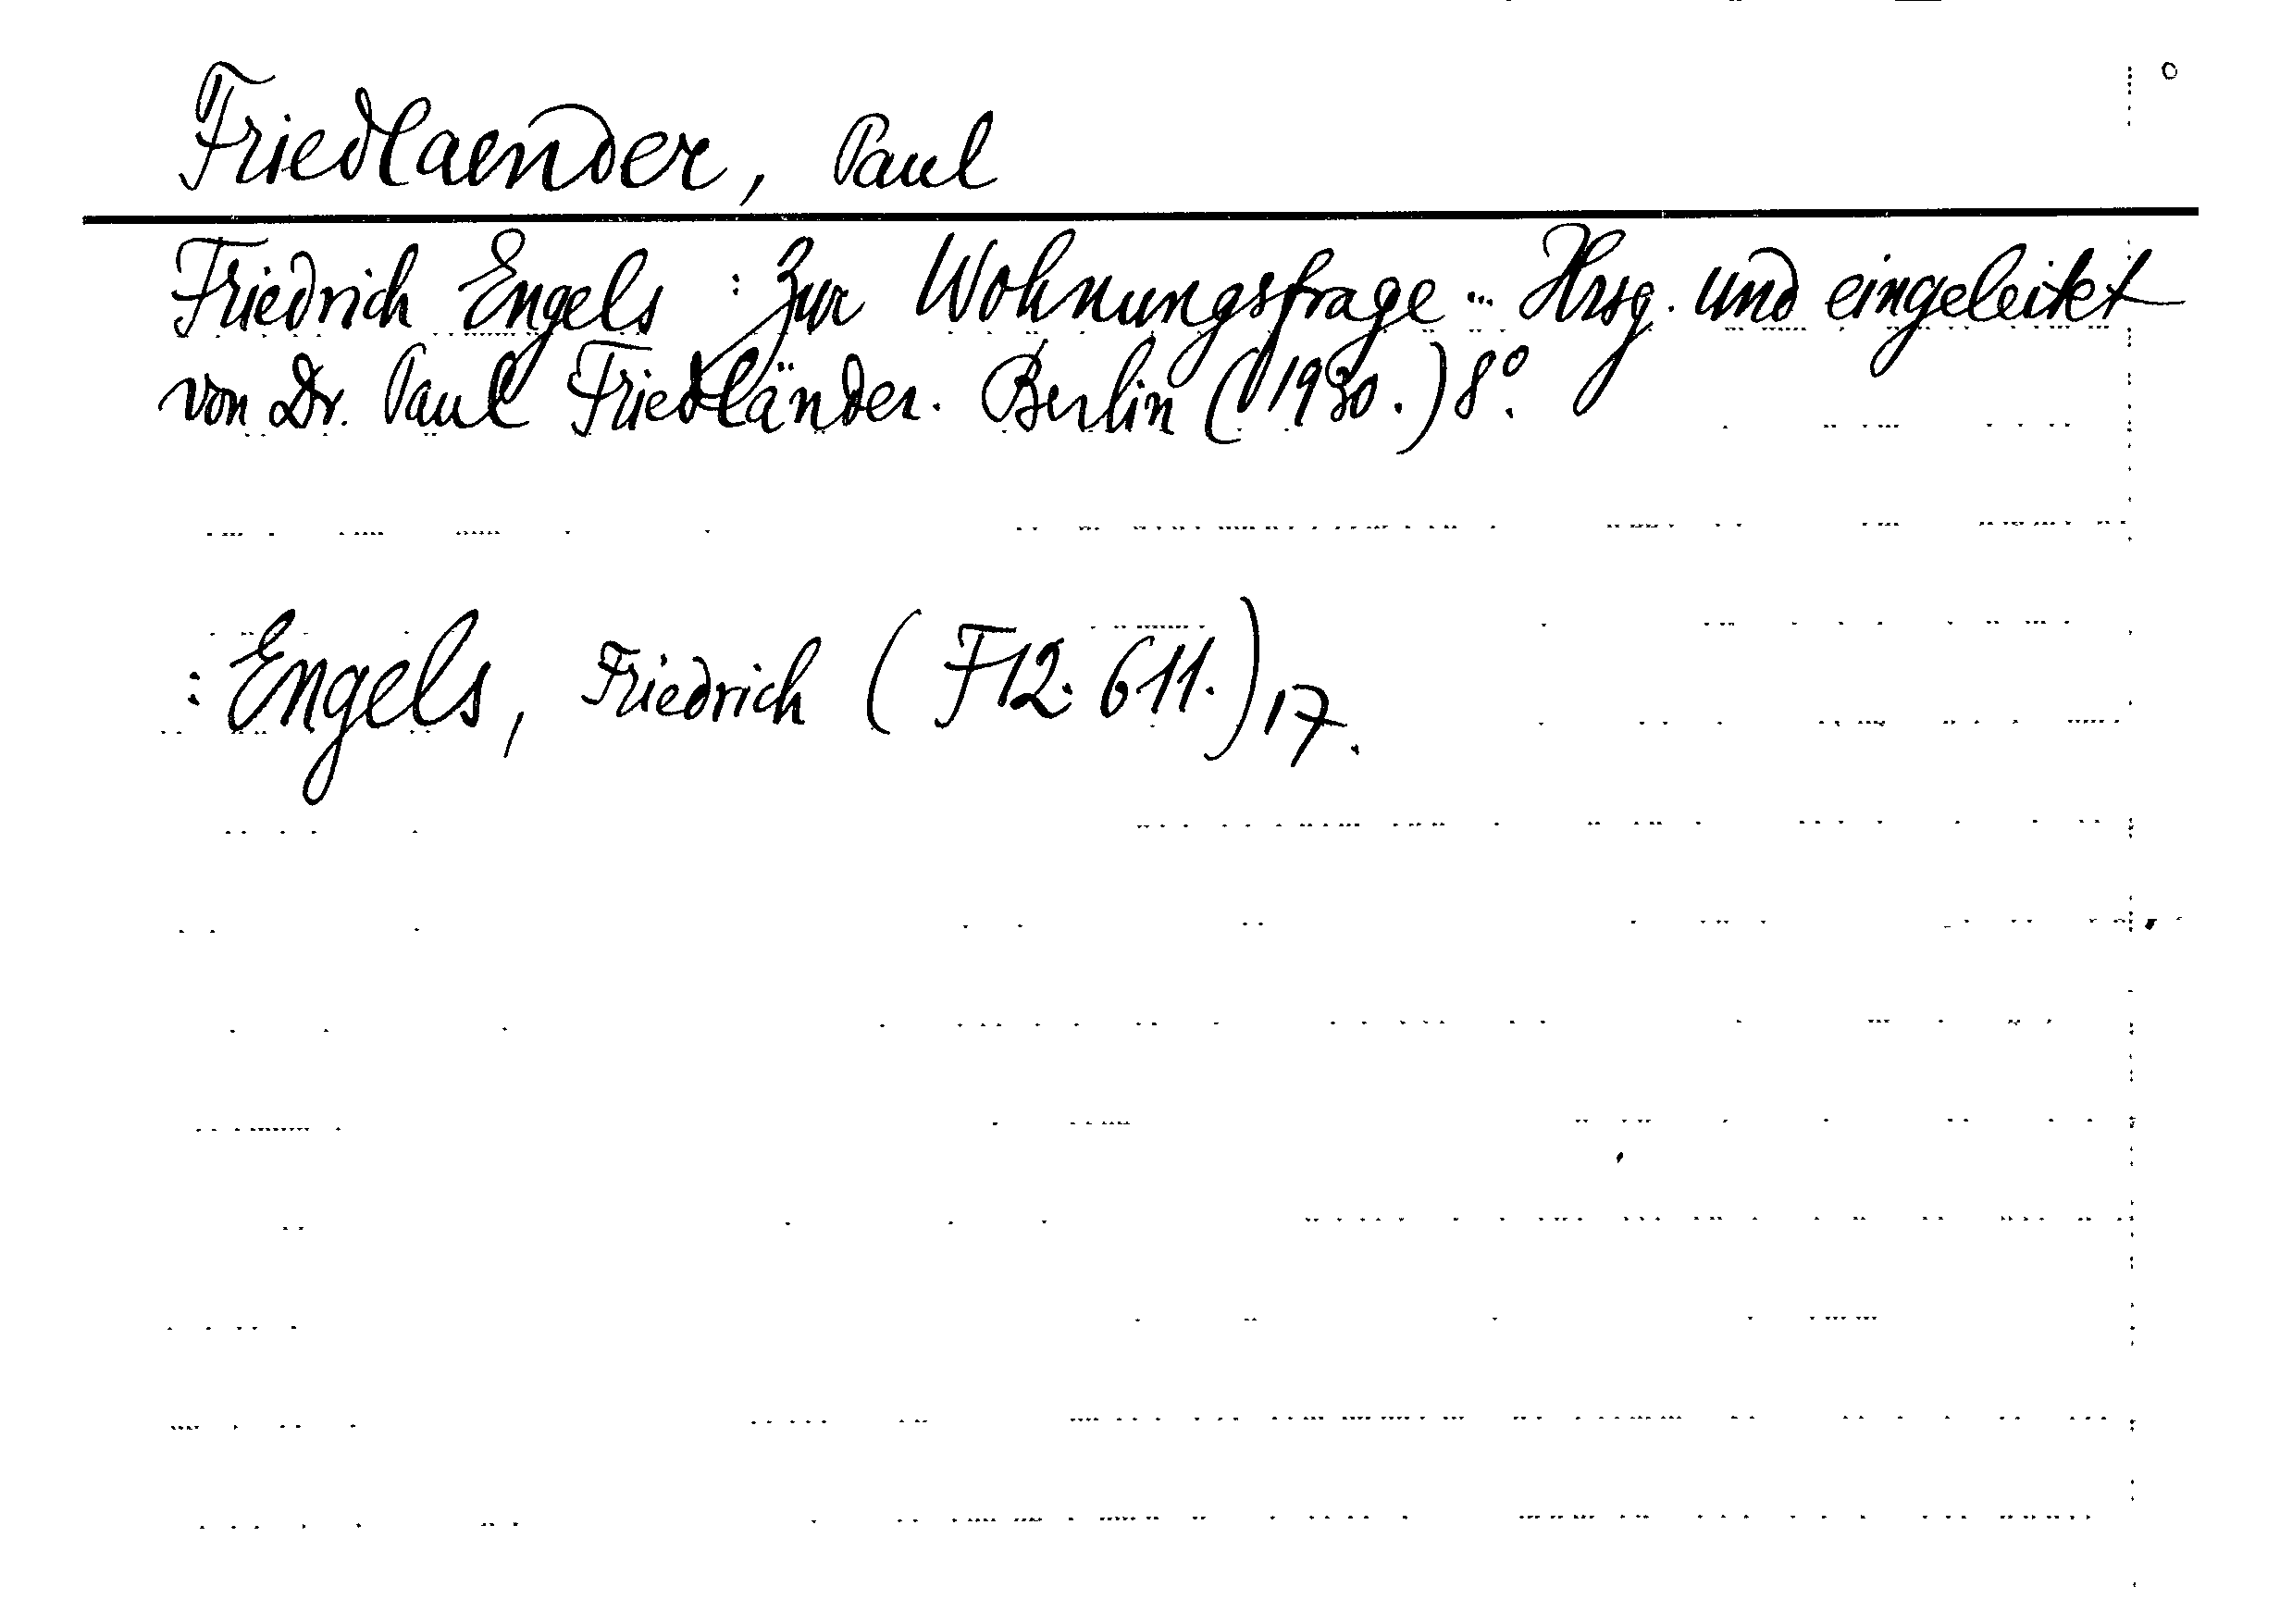 Friedlaender, Paul
Friedrich Engels : Zur Wohnungsfrage ... Hrsg. und eingeleitet
von Dr. Paul Friedländer. Berlin (1930.) 8°.
: Engels, Friedrich (F12. 611.) 17.